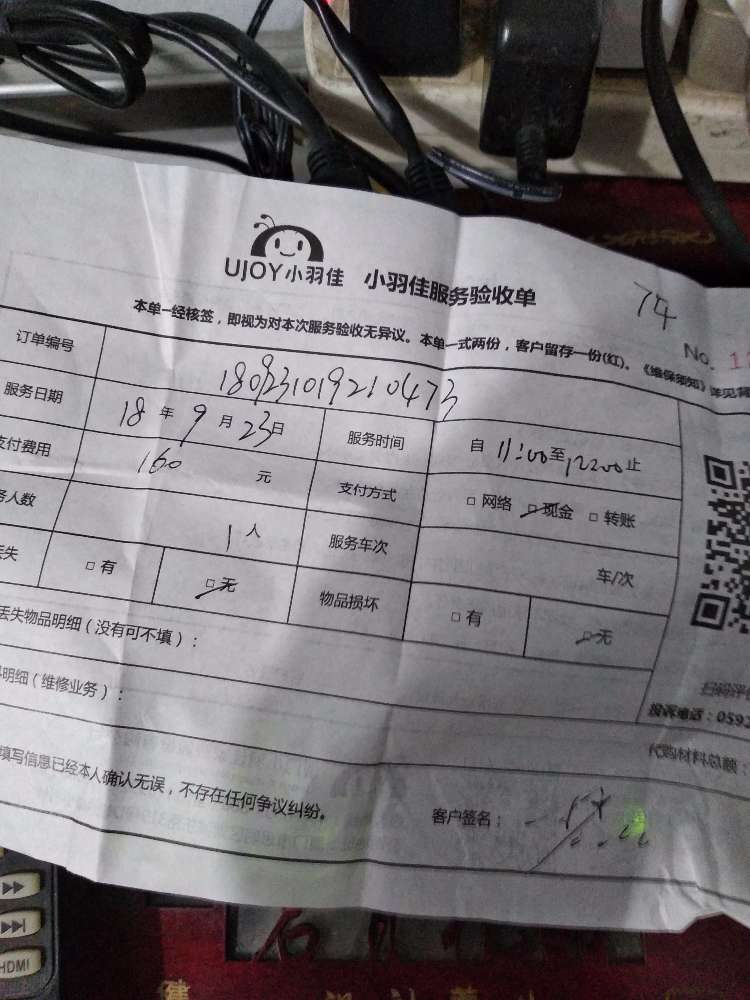 UJOY小羽佳 小羽佳服务验收单
74
No. 1
本单一经核签，即视为对本次服务验收无异议。本单一式两份，客户留存一份(红)。《维保须知》详见背
订单编号 180923101921 0473
服务日期 18 年 9 月 23日 服务时间 自 11:00至12:00止
支付费用 160 元 支付方式 □ 网络 □ 现金 □ 转账
务人数 1 人 服务车次 车/次
丢失 □ 有 □ 无 物品损坏 □ 有 □ 无
丢失物品明细（没有可不填）：
明细（维修业务）：
扫码评
投诉电话：0592
代购材料总额：
填写信息已经本人确认无误，不存在任何争议纠纷。 客户签名：
HDMI